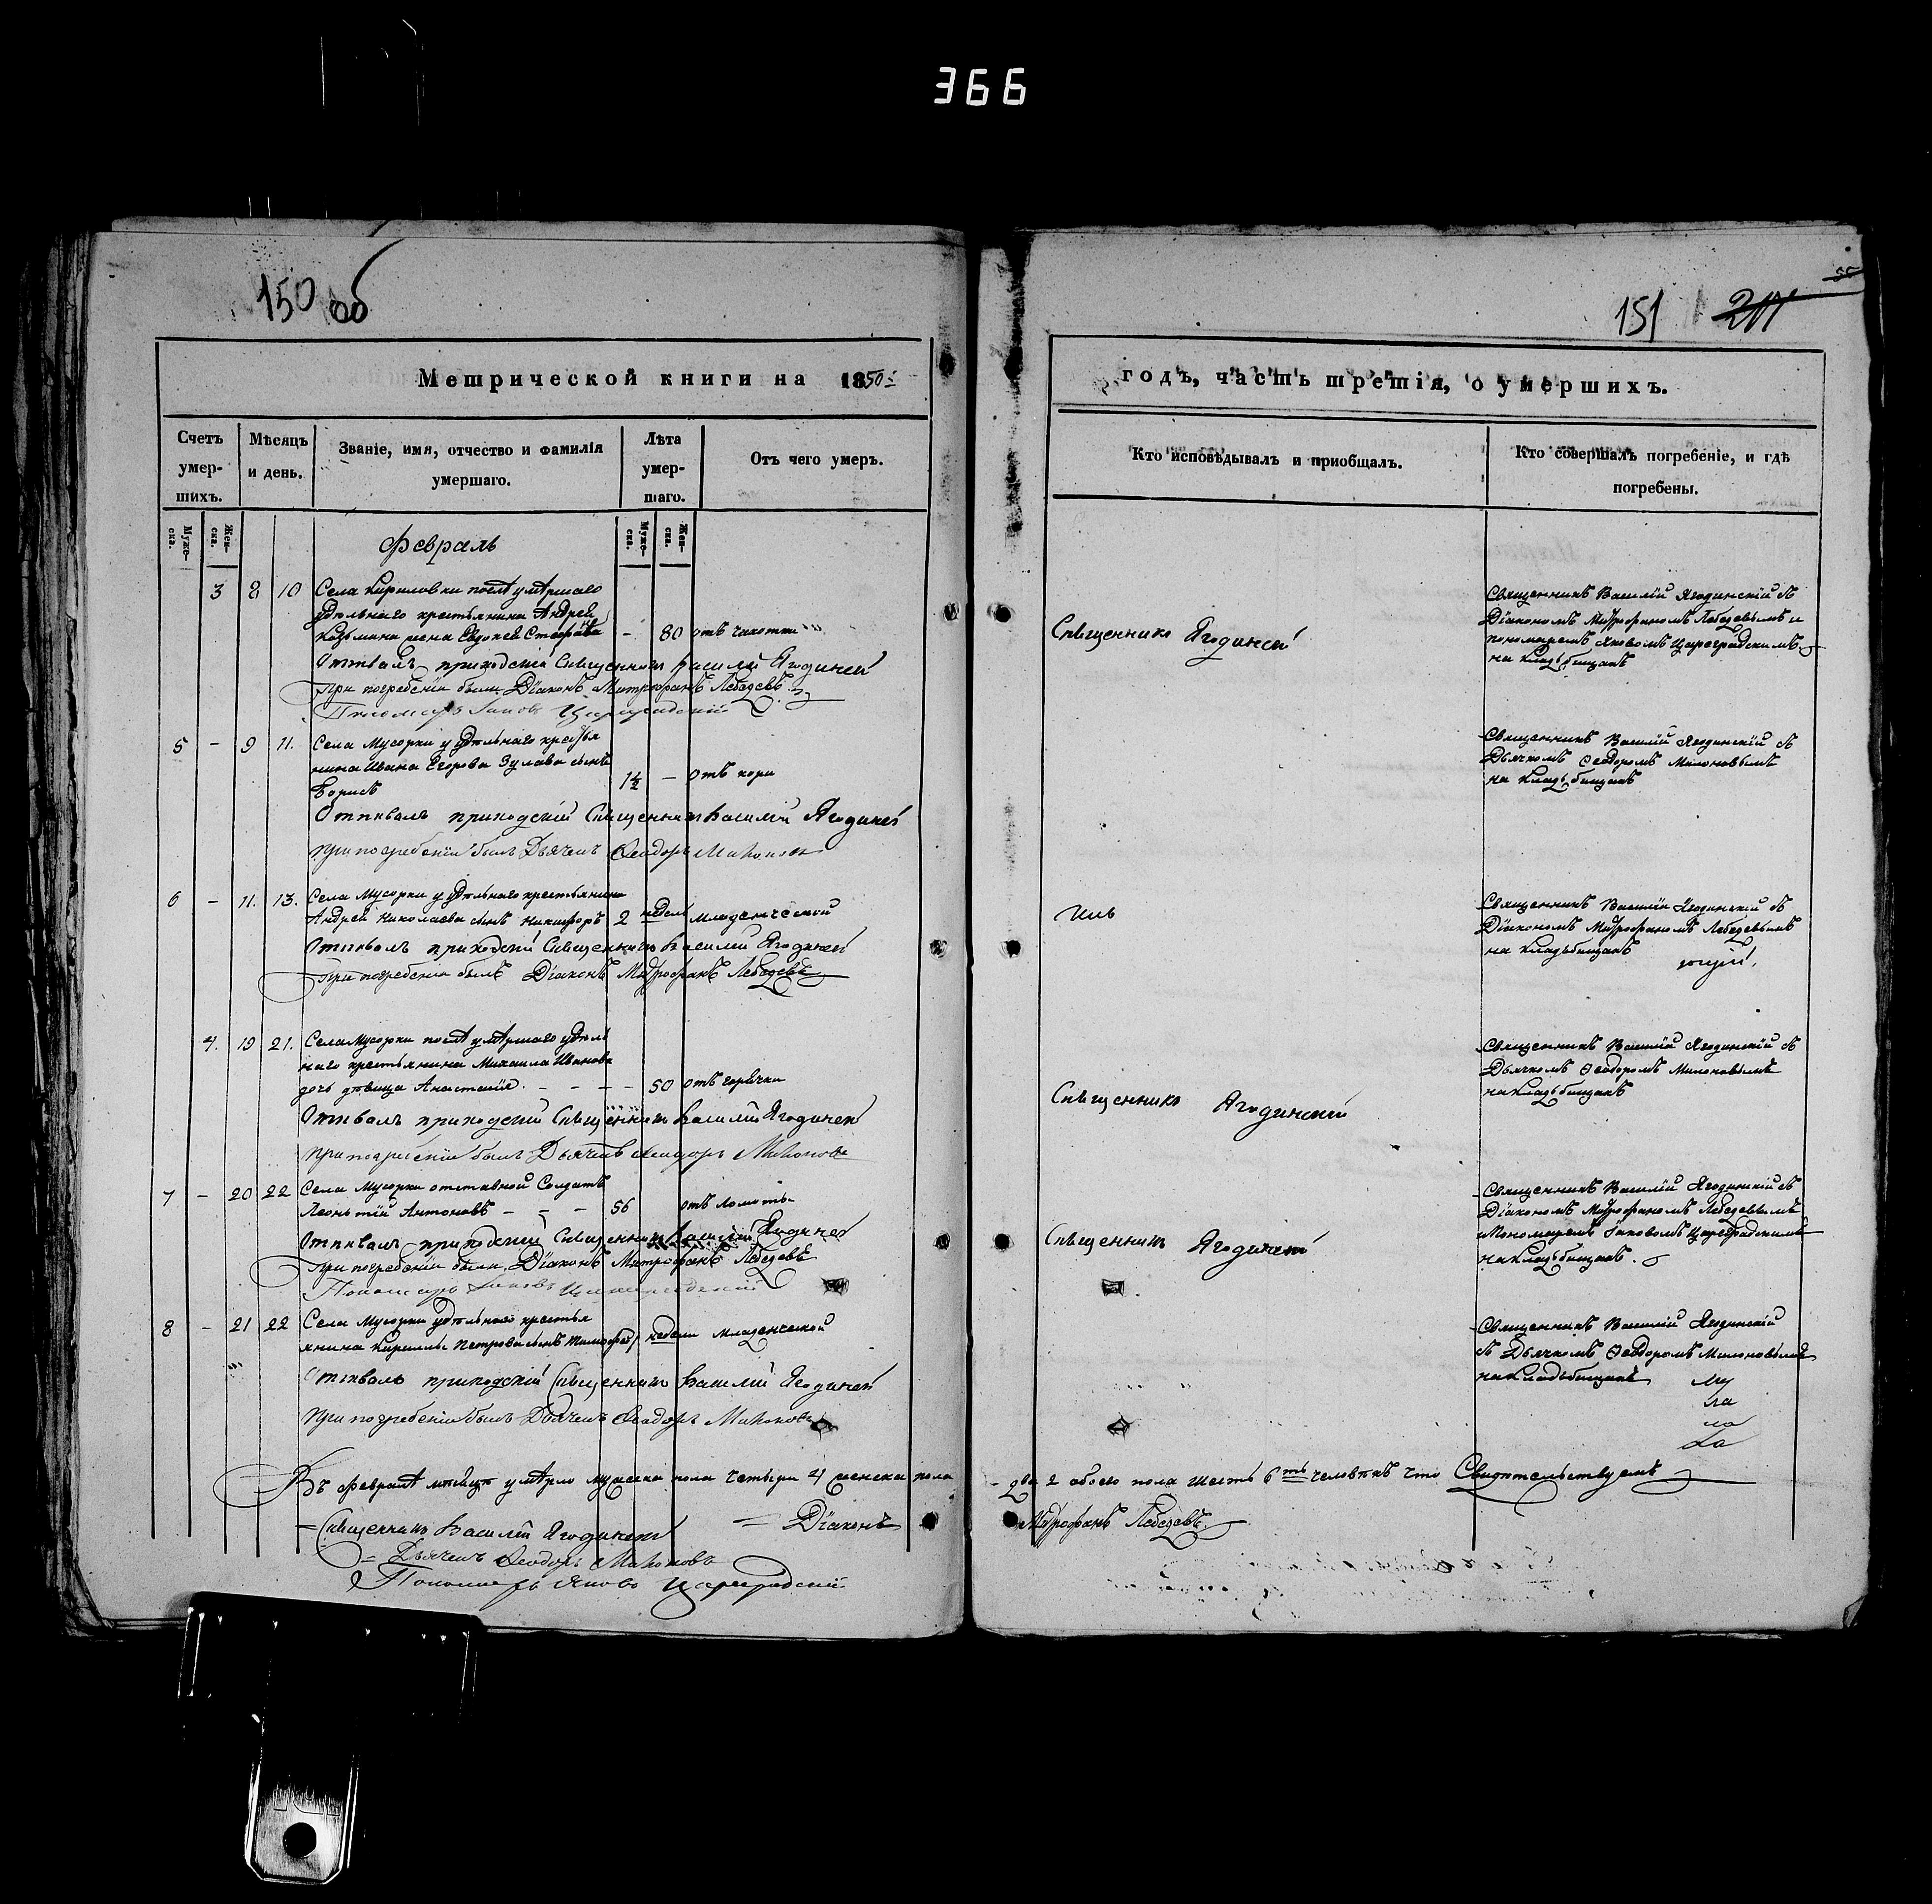 366
150 об
151 201
Метрической книги на 1850й
годъ, часть третія, о умершихъ.
Счетъ умер-шихъ.
Мѣсяцъ и день.
Званіе, имя, отчество и фамилія умершаго.
Лѣта умер-шаго.
Отъ чего умеръ.
Кто исповѣдывалъ и приобщалъ.
Кто совершалъ погребеніе, и гдѣ погребены.
Муже-ска.
Жен-ска.
Муже-ска.
Жен-ска.
Февраль
3 8 10 Села Кириловки послѣ умѣршаго
удѣльнаго крестьянина Андрея
Козьмина жена Евдокея - 80 отъ чахотки
Отпѣвалъ приходскій Священникъ Василій Ягодинскій
При погребеніи были Діаконъ Митрофанъ Лебедевъ
Пономарь Іаковъ Цареградскій
Священникъ Ягодинскій
Священникъ Василій Ягодинскій съ
Діакономъ Митрофаномъ Лебедевымъ и
пономаремъ Яковомъ Цареградскимъ
на кладбищахъ
5 - 9 11. Села Мусорки у удѣльнаго крестья
нина Ивана Егорова сынъ
Борисъ 1½ - отъ кори
Отпѣвалъ приходскій Священникъ Василій Ягодинскій
при погребеніи былъ Дьячекъ Ѳеодоръ Милоновъ
Священникъ Василій Ягодинскій съ
Дьячкомъ Ѳеодоромъ Милоновымъ
на кладбищахъ
6 - 11. 13. Села Мусорки у удѣльнаго крестьянина
Андрея Николаева сынъ Никифоръ 2 недѣл младенческой
Отпѣвалъ приходскій Священникъ Василій Ягодинскій
При погребеніи былъ Діаконъ Митрофанъ Лебедевъ
Священникъ Василій Ягодинскій съ
Діакономъ Митрофаномъ Лебедевымъ
на кладьбищахъ
4. 19 21. Села Мусорки послѣ умѣршаго удѣль
наго крестьянина Михаила Иванова
дочь дѣвица Анастасія - - - - 50 отъ горячки
Отпѣвалъ приходскій Священникъ Василій Ягодинскій
при погребеніи былъ Дьячекъ Ѳеодоръ Милоновъ
Священникъ Ягодинскій
Священникъ Василій Ягодинскій съ
Дьячкомъ Ѳеодоромъ Милоновымъ
на кладбищахъ
7 - 20 22 Села Мусорки отставной Солдатъ
Леонътій Антоновъ - - - 56 отъ ломоты
Отпѣвалъ приходскій Священникъ Василій Ягодинскій
При погребеніи были Діаконъ Митрофанъ Лебедевъ
Пономарь Іаковъ Цареградскій
Священникъ Ягодинскій
Священникъ Василій Ягодинскій съ
Діакономъ Митрофаномъ Лебедевымъ
и Пономаремъ Іаковомъ Цареградскимъ
на кладбищахъ.
8 - 21 22 Села Мусорки удѣльнаго крестья
янина Кириллы Петрова сынъ Тимофей недели младенческой
Отпѣвалъ приходскій Священникъ Василій Ягодинскій
При погребеніи былъ Дьячекъ Ѳеодоръ Милоновъ
Священникъ Василій Ягодинскій
съ Дьячкомъ Ѳеодоромъ Милоновымъ
на кладбищахъ
Въ февралѣ мѣсяцѣ умѣрло мужеска пола четыри 4 женска пола
два 2 обоего пола шесть 6ть человѣкъ что Свидѣтельствуемъ
Священникъ Василій Ягодинскій Діаконъ
Митрофанъ Лебедевъ
Дьячекъ Ѳеодоръ Милоновъ
Пономарь Яковъ Цареградскій